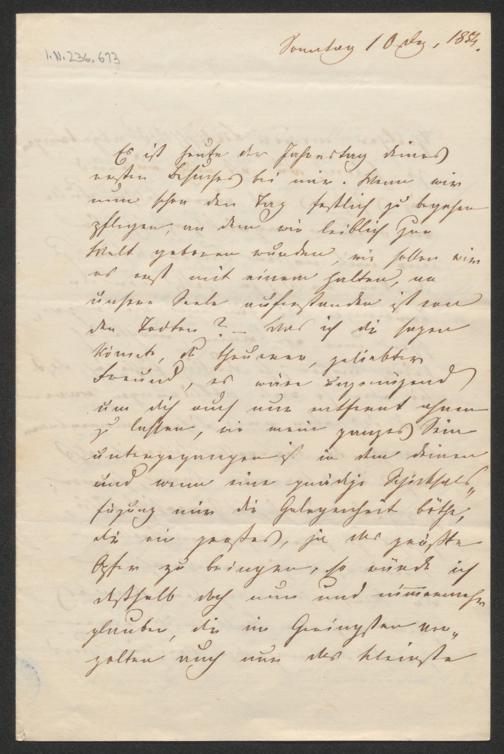 I.N. 236.673
Sonntag 10 Dez. 1854.
Es ist heute der Jahrestag deines
ersten Besuches bei mir. Wenn wir
nun schon den Tag festlich zu begehen
pflegen, an dem wir leiblich zur
Welt geboren wurden, wie sollen wir
es erst mit einem halten, an
unsere Seele auferstanden ist von
den Todten? – Was ich dir sagen
könnte, o theurer, geliebter
Freund, es wäre ungenügend
um dich auch nur entfernt ahnen
zu lassen, wie mein ganzes Sein
untergegangen ist in dem deinen
und wenn eine gnädige Schicksals„
fügung mir die Gelegenheit böthe,
dir ein großes, ja das größte
Opfer zu bringen, so würde ich
deßhalb doch nun und nimmermehr
glauben, dir im Geringsten ver„
golten auch nur das kleinste